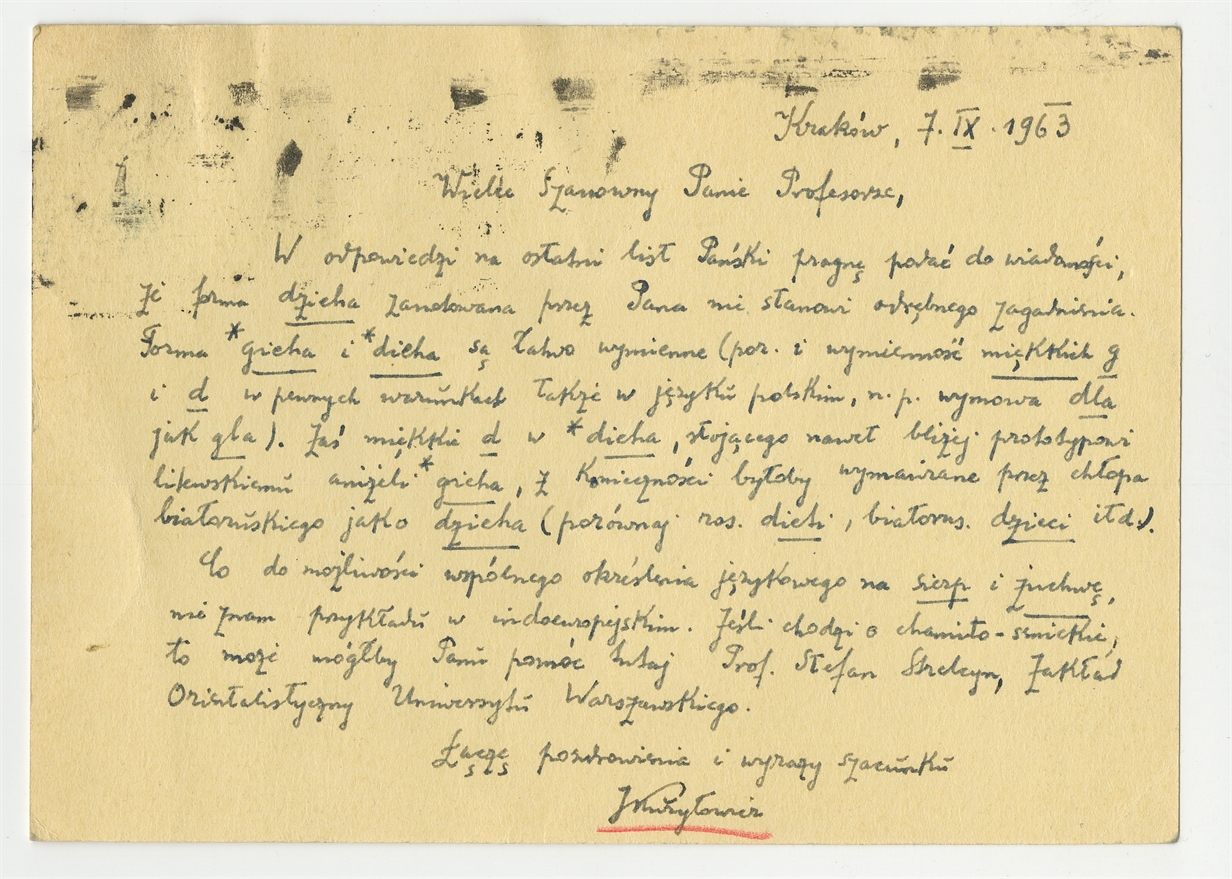 Kraków, 7. IX. 1963
Wielce Szanowny Panie Profesorze,
W odpowiedzi na ostatni list Pański pragnę podać do wiadomości,
że forma dzieha zanotowana przez Pana nie stanowi odrębnego zagadnienia.
Forma *gieha i *dieha są łatwo wymienne (por. i wymienność miękkich g
i d w pewnych warunkach także w języku polskim, n.p. wymowa dla
jak gla). Zaś miękkie d w *dieha, stojącego nawet bliżej prototypowi
litewskiemu aniżeli *gieha, z konieczności byłoby wymawiane przez chłopa
białoruskiego jako dzieha (porównaj ros. dieti, białorus. dzieci itd.).
Co do możliwości wspólnego określenia językowego na sierp i żuchwę,
nie znam przykładu w indoeuropejskim. Jeśli chodzi o chamito-semickie,
to może mógłby Panu pomóc tutaj Prof. Stefan Strelcyn, Zakład
Orientalistyczny Uniwersytetu Warszawskiego.
Łączę pozdrowienia i wyrazy szacunku
JKuryłowicz